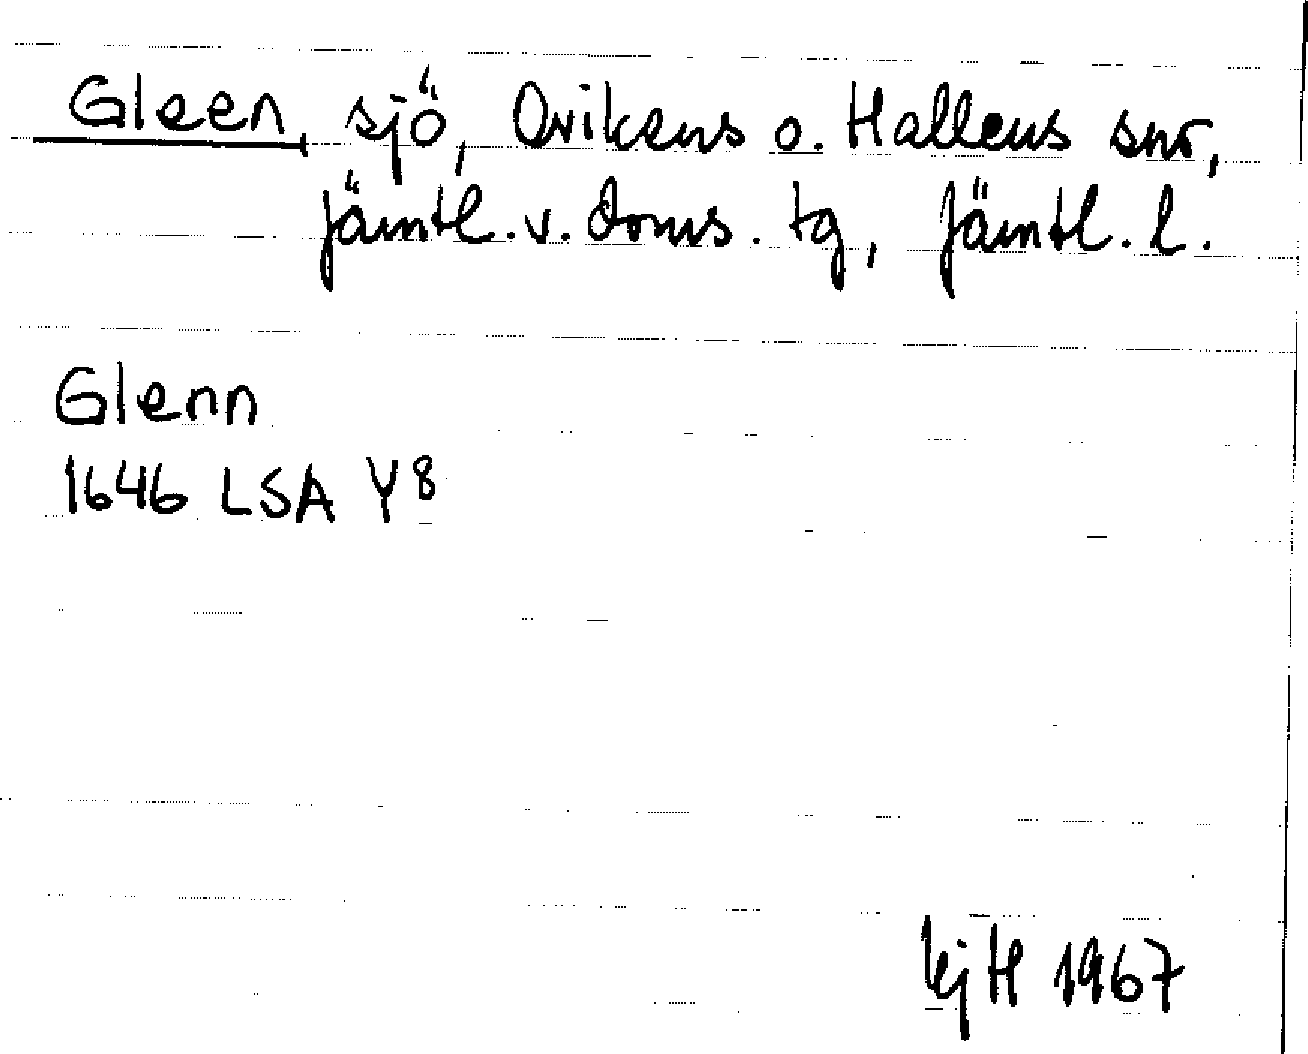 Gleen, sjö, Ovikens o. Hallens snr,
Jämtl. v. doms. tg, Jämtl. l.
Glenn
1646 LSA Y8
KjH 1967